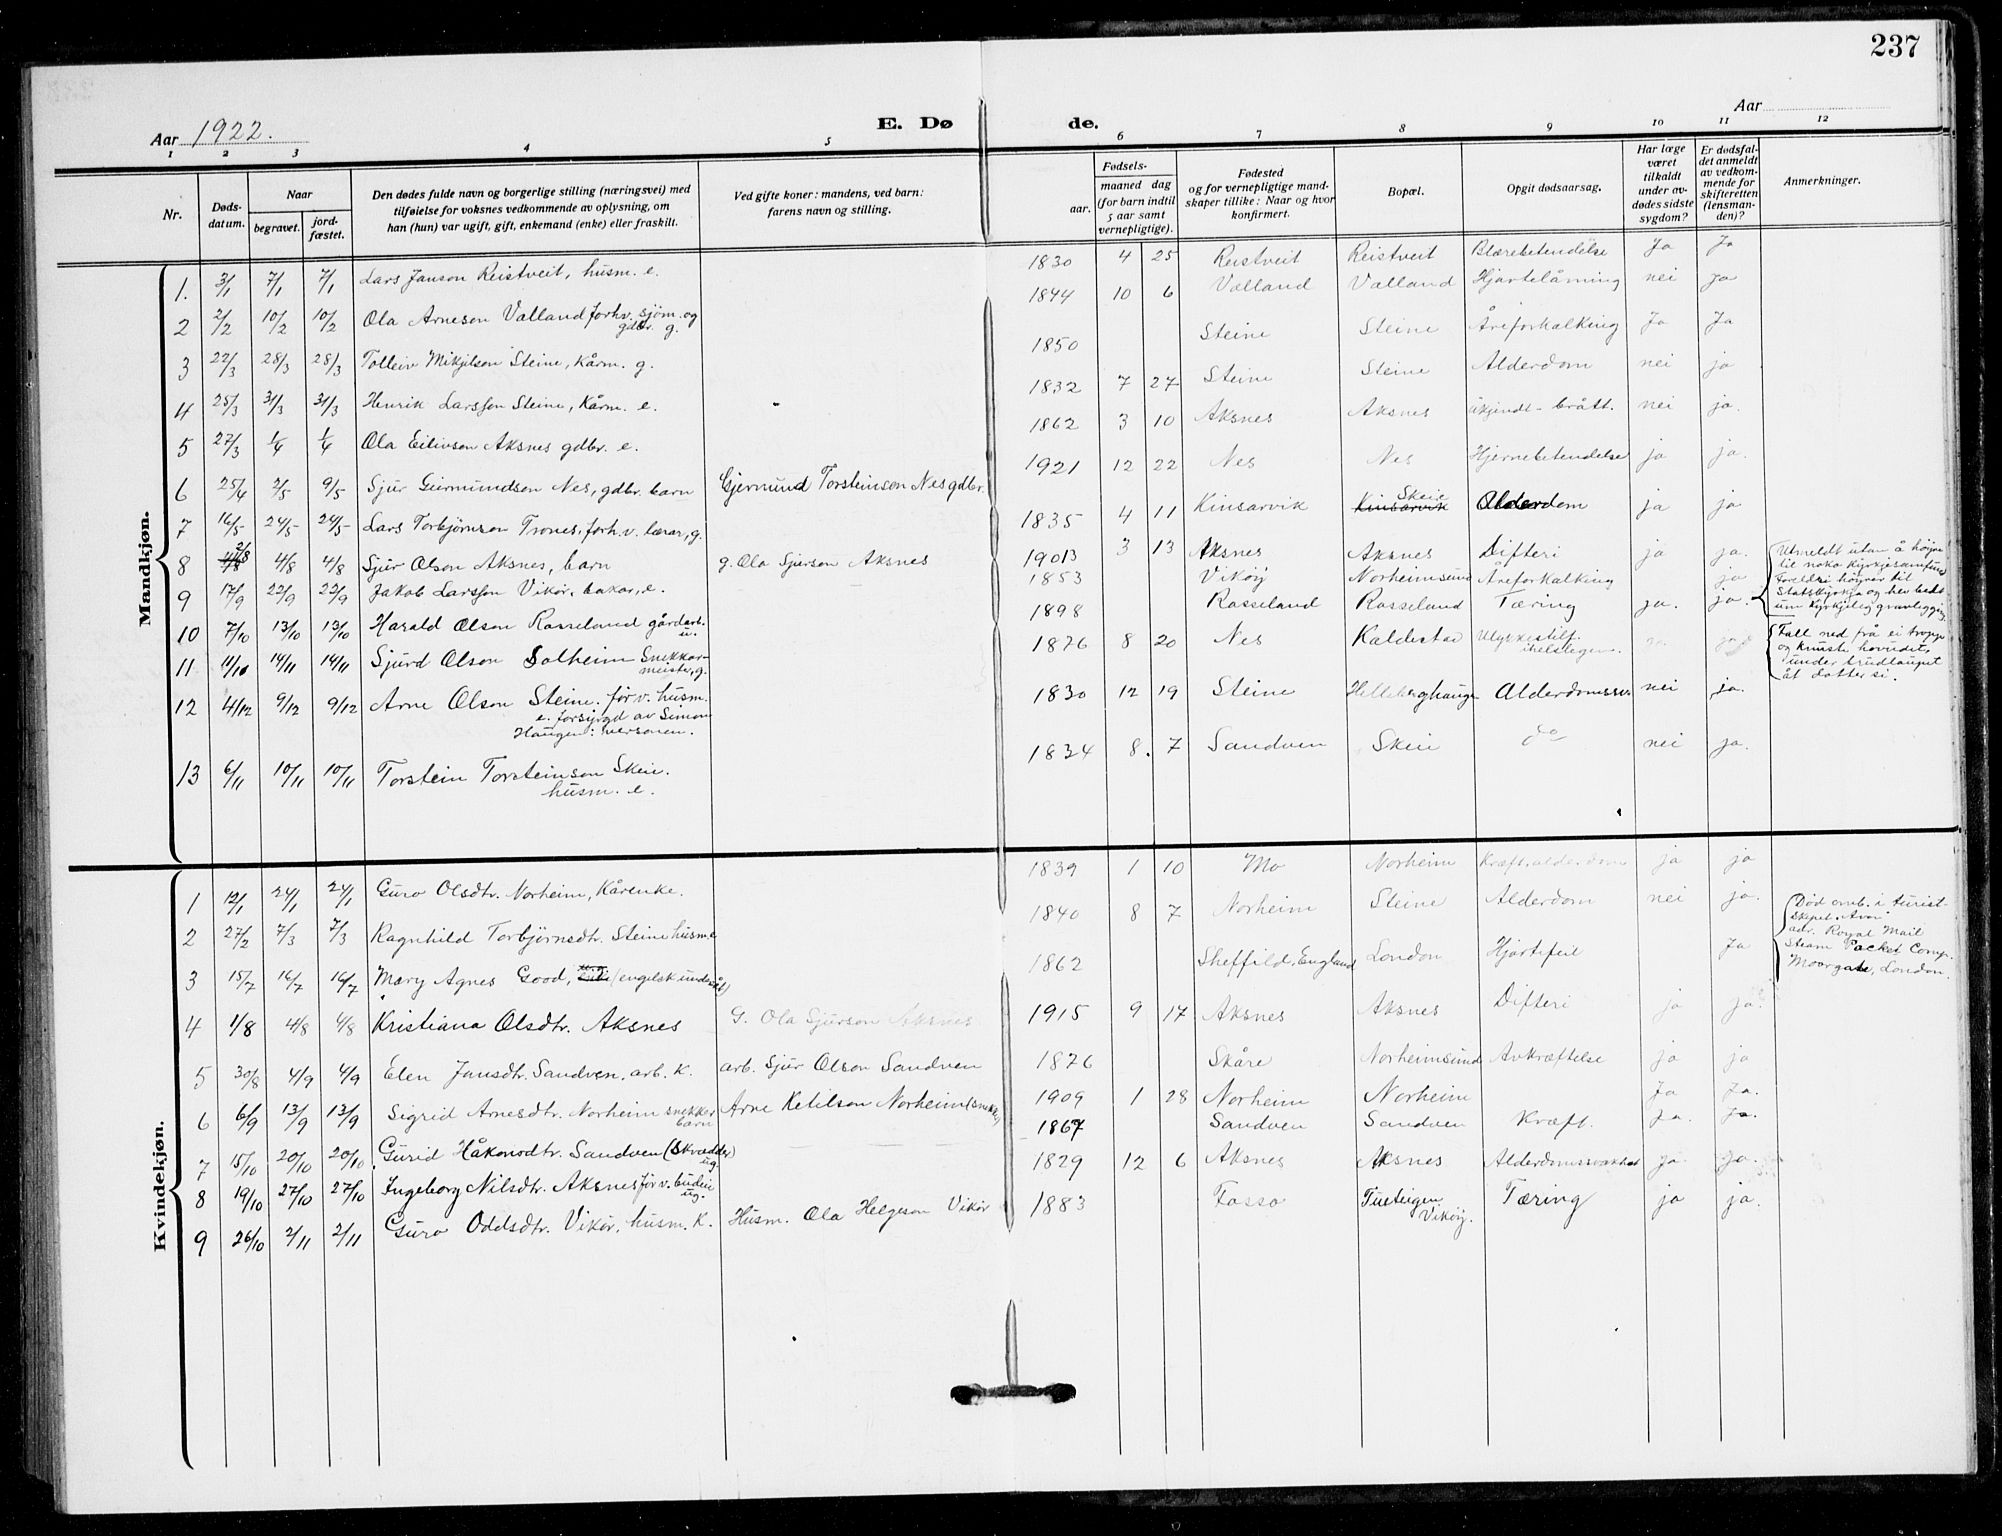 237
Aar 1922.
E. Døde.
Aar
1 2 3 4 5 6 7 8 9 10 11 12
Nr.
Døds-
datum.
Naar
begravet.
jord-
fæstet.
Den dødes fulde navn og borgerlige stilling (næringsvei) med
tilføielse for voksnes vedkommende av oplysning, om
han (hun) var ugift, gift, enkemand (enke) eller fraskilt.
Ved gifte koner: mandens, ved barn:
farens navn og stilling.
Fødsels-
aar.
maaned dag
(for barn indtil
5 aar samt
vernepligtige).
Fødested
og for vernepligtige mand-
skaper tillike: Naar og hvor
konfirmert.
Bopæl.
Opgit dødsaarsag.
Har læge
været
tilkaldt
under av-
dødes sidste
sygdom?
Er dødsfal-
det anmeldt
av vedkom-
mende for
skifteretten
(lensman-
den)?
Anmerkninger.
Mandkjøn.
1. 3/1 7/1 7/1 Lars Janson Reistveit, husm. e. 1830 4 25 Reistveit Reistveit Blærebetendelse Ja Ja
2 2/2 10/2 10/2 Ola Arneson Valland forhv. sjöm. og
gdbr. g. 1844 10 6 Valland Valland Hjartelåming nei ja
3 22/3 28/3 28/3 Tolleiv Mikjelson Steine, Kårm. g. 1850 Steine Steine Åreforkalking Ja Ja
4 25/3 31/3 31/3 Henrik Larsson Steine, Kårm. e. 1832 7 27 Steine Steine Alderdom nei ja
5 27/3 1/4 1/4 Ola Eilivson Aksnes gdbr. e. 1862 3 10 Aksnes Aksnes ukjendt - brått. nei ja.
6 25/4 2/5 9/5 Sjur Geirmundson Nes, gdbr. barn Gjermund Torsteinson Nes gdbr. 1921 12 22 Nes Nes Hjernebetendelse ja ja.
7 16/5 24/5 24/5 Lars Torbjörnson Trones, forh.v. lærar, g. 1835 4 11 Kinsarvik Kinsarvik Skeie Alderdom ja ja
8 2/8 4/8 4/8 Sjur Olson Aksnes, barn g. Ola Sjurson Aksnes 1913 3 13 Aksnes Aksnes Difteri ja ja.
9 17/9 23/9 23/9 Jakob Larsson Vikör, bakar, e. 1853 Viköy Norheimsund Åreforkalking ja
10 7/10 13/10 13/10 Harald Olson Rosseland gårdarb.
u. 1898 Rosseland Rosseland Tæring ja. ja.
Utmeldt utan å höyra
til noko kyrkjesamfund
Foreldri höyrer til
Statskyrkja og hev bedt
um kyrkjeleg gravlegging
11. 11/10 14/11 14/11 Sjurd Olson Solheim Snekkar-
meister, g. 1876 8 20 Nes Kaldestad Ulykkestilf.
ihelslegen.
Fall ned frå ei tropp
og knuste hovudet,
under brudlaupet
åt dotter si.
12 4/12 9/12 9/12 Arne Olson Steine. förv. husm.
e. forsyrgd av Simon
Haugen: versonen. 1830 12 19 Steine Helleberghaugen Alderdomssv. nei ja.
13 6/11 10/11 10/11 Torstein Torsteinson Skeie.
husm. e. 1834 8. 7 Sandven Skeie do nei ja.
Kvindekjøn.
1 12/1 24/1 24/1 Guro Olsdtr. Norheim, Kårenke. 1839 1 10 Mo Norheim Kræft, alderdom ja ja
2 27/2 7/3 7/3 Ragnhild Torbjörnsdtr. Steine husm. e 1840 8 7 Norheim Steine Alderdom nei ja.
3 15/7 16/7 16/7 Mary Agnes Good, (engelsk undersåt) 1862 Sheffild, England London Hjartefeil Ja
Död omb. i turist-
skipet "Avon"
adr. Royal Mail
Steam Packet Comp.
Moorgate, London.
4 1/8 4/8 4/8 Kristiana Olsdtr. Aksnes G. Ola Sjurson Aksnes 1915 9 17 Aksnes Aksnes Difteri ja ja
5 30/8 4/9 4/9 Elen Jansdtr. Sandven, arb. k. arb. Sjur Olson Sandven 1876 Skåre Norheimsund Avkræftelse ja ja
6 6/9 13/9 13/9 Sigrid Arnesdtr. Norheim snekker
barn Arne Ketilson Norheim (snekker) 1909 1 28 Norheim Norheim Ja Ja.
7 15/10 20/10 20/10 Gurid Håkonsdtr. Sandven (Skrædder)
ug. 1867 Sandven Sandven Kræft. ja. ja.
8 19/10 27/10 27/10 Ingeborg Nilsdtr. Aksnes förv. budeie
ug. 1829 12 6 Aksnes Aksnes Alderdomssvakhet ja. ja.
9 26/10 2/11 2/11 Guro Oddsdtr. Vikör, husm. k. Husm. Ola Helgeson Vikör 1883 Fosso Tueteigen
Viköy. Tæring ja ja.